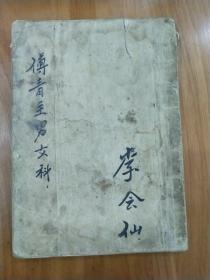 傅青主男女科
李会仙